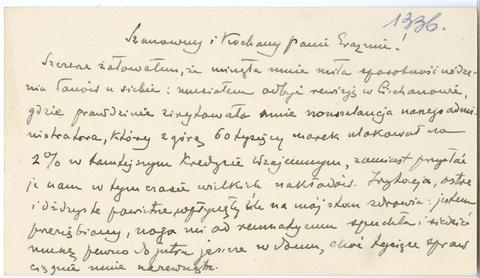 1336.
Szanowny i Kochany Panie Erazmie!
Szczerze żałowałem, że minęła mnie miła sposobność widze-
nia Panów u siebie: musiałem odbyć rewizję w Ciechanowie,
gdzie prawdziwie zirytowała mnie nonszalancja naszego admi-
nistratora, który z górą 60 tysięcy marek ulokował na
2% w tamtejszym Kredycie Wzajemnym, zamiast przysłać
je nam w tym czasie wielkich nakładów. Irytacja, ostre
i dżdżyste powietrze, wpłynęły źle na mój stan zdrowia: jestem
przeziębiony, noga mi od reumatyzmu spuchła i siedzieć
muszę pewno do jutra jeszcze w domu, choć tysiące spraw
ciągnie mnie na zewnątrz.